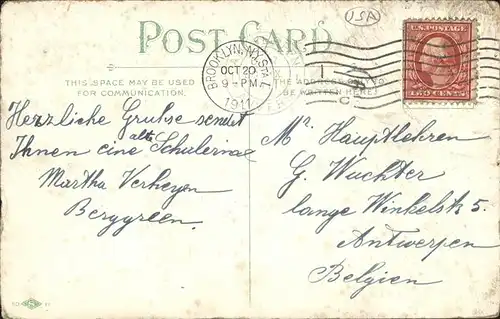 USA
POST CARD
U.S. POSTAGE
TWO CENTS
BROOKLYN, N.Y. STA
OCT 20
9-PM
1911
THIS SPACE MAY BE USED
FOR COMMUNICATION.
THE ADDRESS
BE WRITTEN HERE
Herzliche Gruhse sendet
Ihnen eine alte Schulerin
Martha Verheyen
Berggreen.
Mr Hauptlehren
G. Wuchter
lange Winkelstr 5.
Antwerpen
Belgien